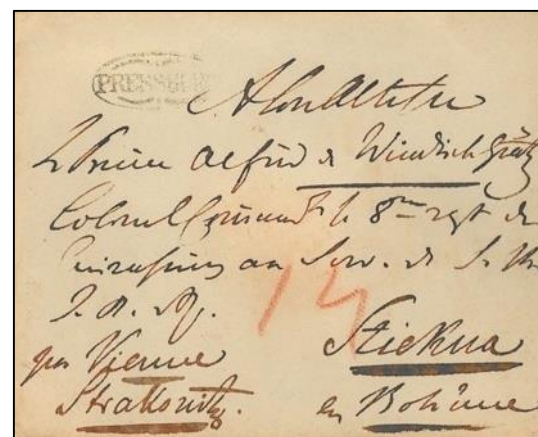 PRESSBURG
A Son Altesse
le Prince Alfred de Windisch Grätz
Colonel Command. le 8me regt de
Cuirassiers au Serv. de S. M.
J. R. Ap.
14
par Vienne
Strakonitz.
Stiekna
en Bohême